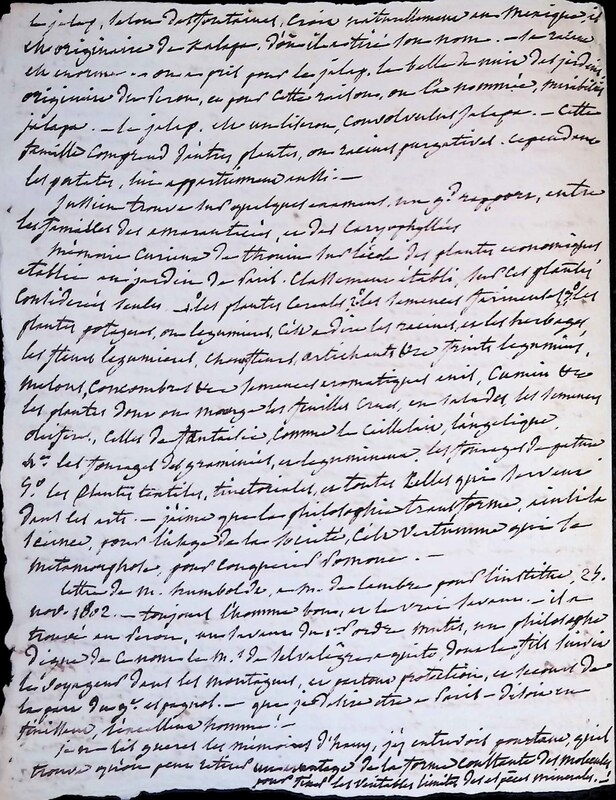 le jalap, selon desfontaines, croit naturellement au Mexique, il
est originaire de xalapa, d'où il a tiré son nom. — sa racine
est enorme — on a pris pour le jalap, la belle de nuit des jardins
originaire du Perou, et pour cette raison, on l'a nommée, mirabilis
jalapa. — le jalap, est un liseron, convolvulus jalapa. — Cette
famille comprend d'autres plantes, ou racines purgatives. cependant
les patates, lui appartiennent aussi. —
Jussieu trouve sur quelques examens, un gd rapport, entre
les familles des amarantacées, et des caryophyllées
Mémoire curieux de thouin sur l'école des plantes economiques
etablie au jardin de Paris. Classement établi, sur ces plantes
Considerées seules — 1º les plantes cereales 2º les semences farineuses 3º les
plantes potageres, ou legumieres, c'est à dire les racines, et les herbages,
les fleurs legumieres, chouxfleurs, artichauts &c fruits legumiers,
melons, concombres &c semences aromatiques anis, Cumin &c
les plantes dont on mange les feuilles crues, en salades les semences
celles de fantaisie, comme le la l'angelique,
4º les fourages des graminées, et legumineux les fourages de pature
5º les Plantes textiles, tinctoriales, et toutes Celles qui servent
dans les arts. — j'aime que la philosophie transforme, ainsi la
science, pour l'usage de la société, C'est vertumne qui se
métamorphose, pour conquerir Pomone. —
lettre de m. humboldt, a m. de lambre pour l'institut, 25
nov. 1802. — toujours l'homme bon, et le vrai savant. — il a
trouvé au Perou, un savant du 1er ordre mutis, un philosophe
digne de ce nom le M.is de selvalegre a quito dont le fils suivit
le voyageur dans les montagnes, et partout protection, et secours de
la part du gt espagnol. — que je desire etre a Paris — dit on en
finissant, l'excellent homme! —
je ne lis gueres les mémoires d'hauy, j'y entrevois pourtant, qu'il
trouve qu'on peut retirer un avantage de la forme constante des molecules,
pour fixer les véritables limites des espèces minerales. —